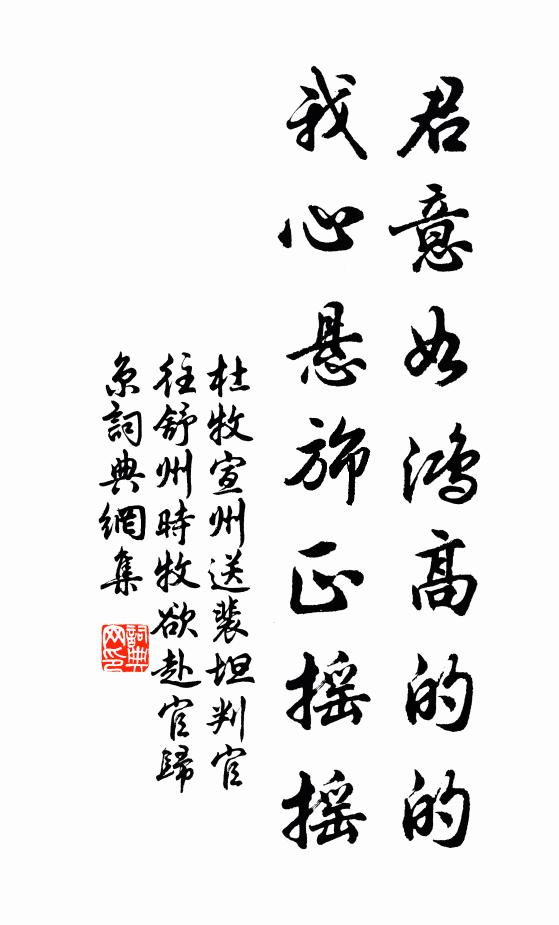 君意如鸿高的的
我心悬旆正摇摇
杜牧宣州送裴坦判官
往舒州時牧欲赴官歸
京詞典網集
詞典网印